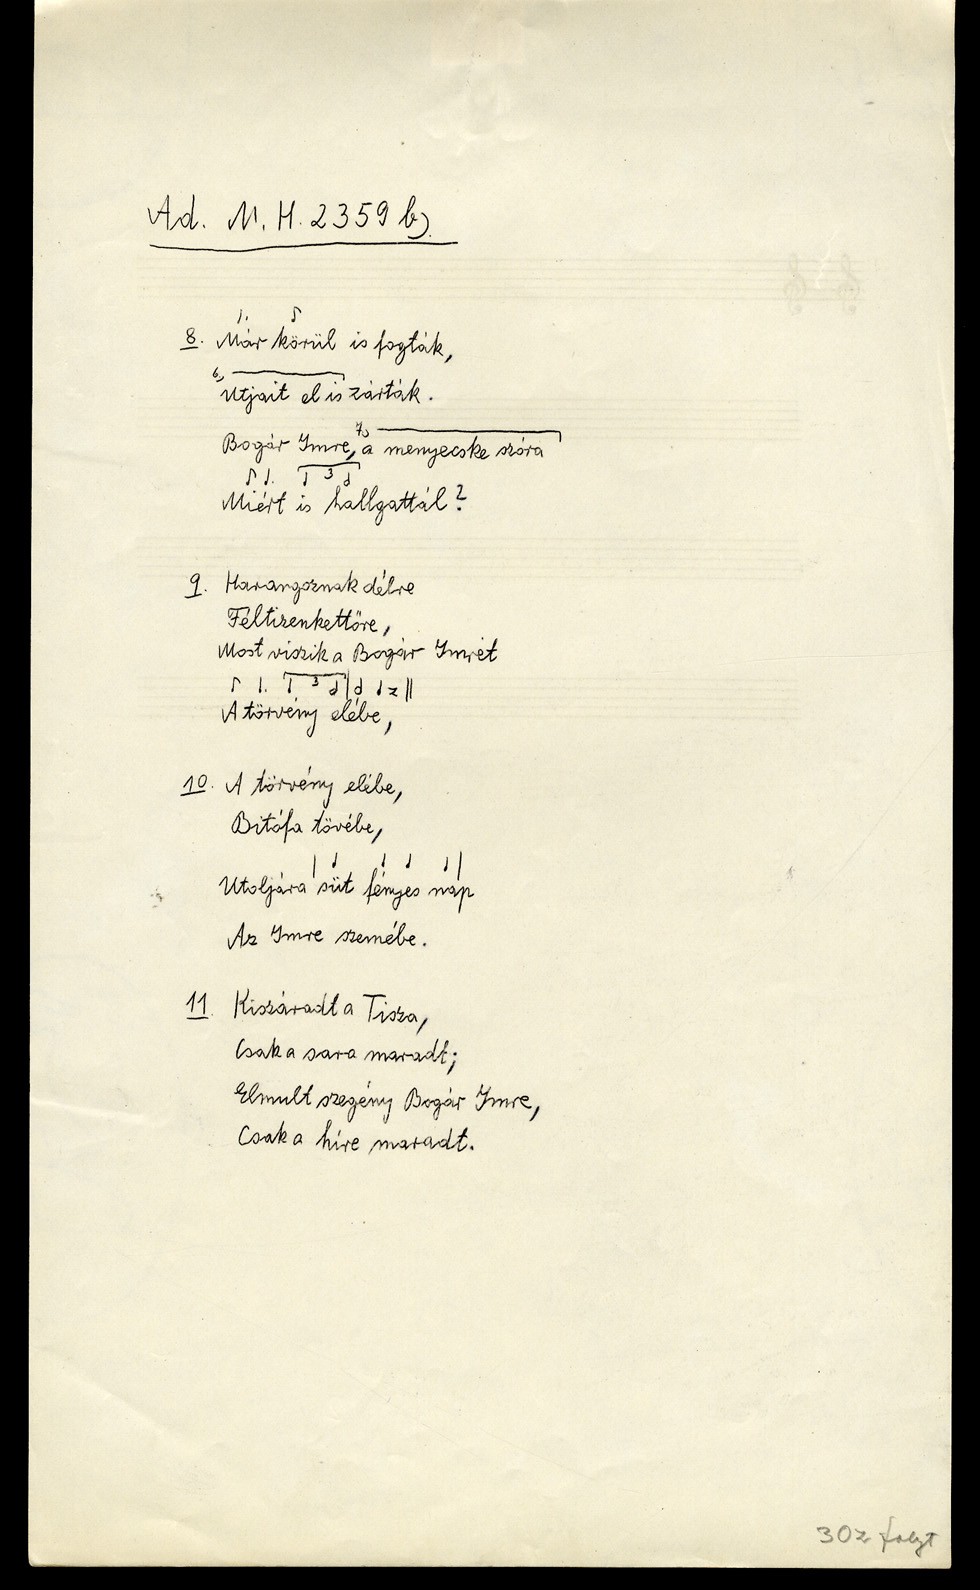 Ad. M. H. 2359 b)
8. Már körül is fogták,
6) Utjait el is zárták.
Bogár Imre, 7) a menyecske szóra
3
Miért is hallgattál?
9. Harangoznak délre
Féltizenkettőre,
Most viszik a Bogár Imrét
3
A törvény elébe,
10. A törvény elébe,
Bitófa tövébe,
Utoljára süt fényes nap
Az Imre szemébe.
11. Kiszáradt a Tisza,
Csak a sara maradt;
Elmult szegény Bogár Imre,
Csak a híre maradt.
302 folyt